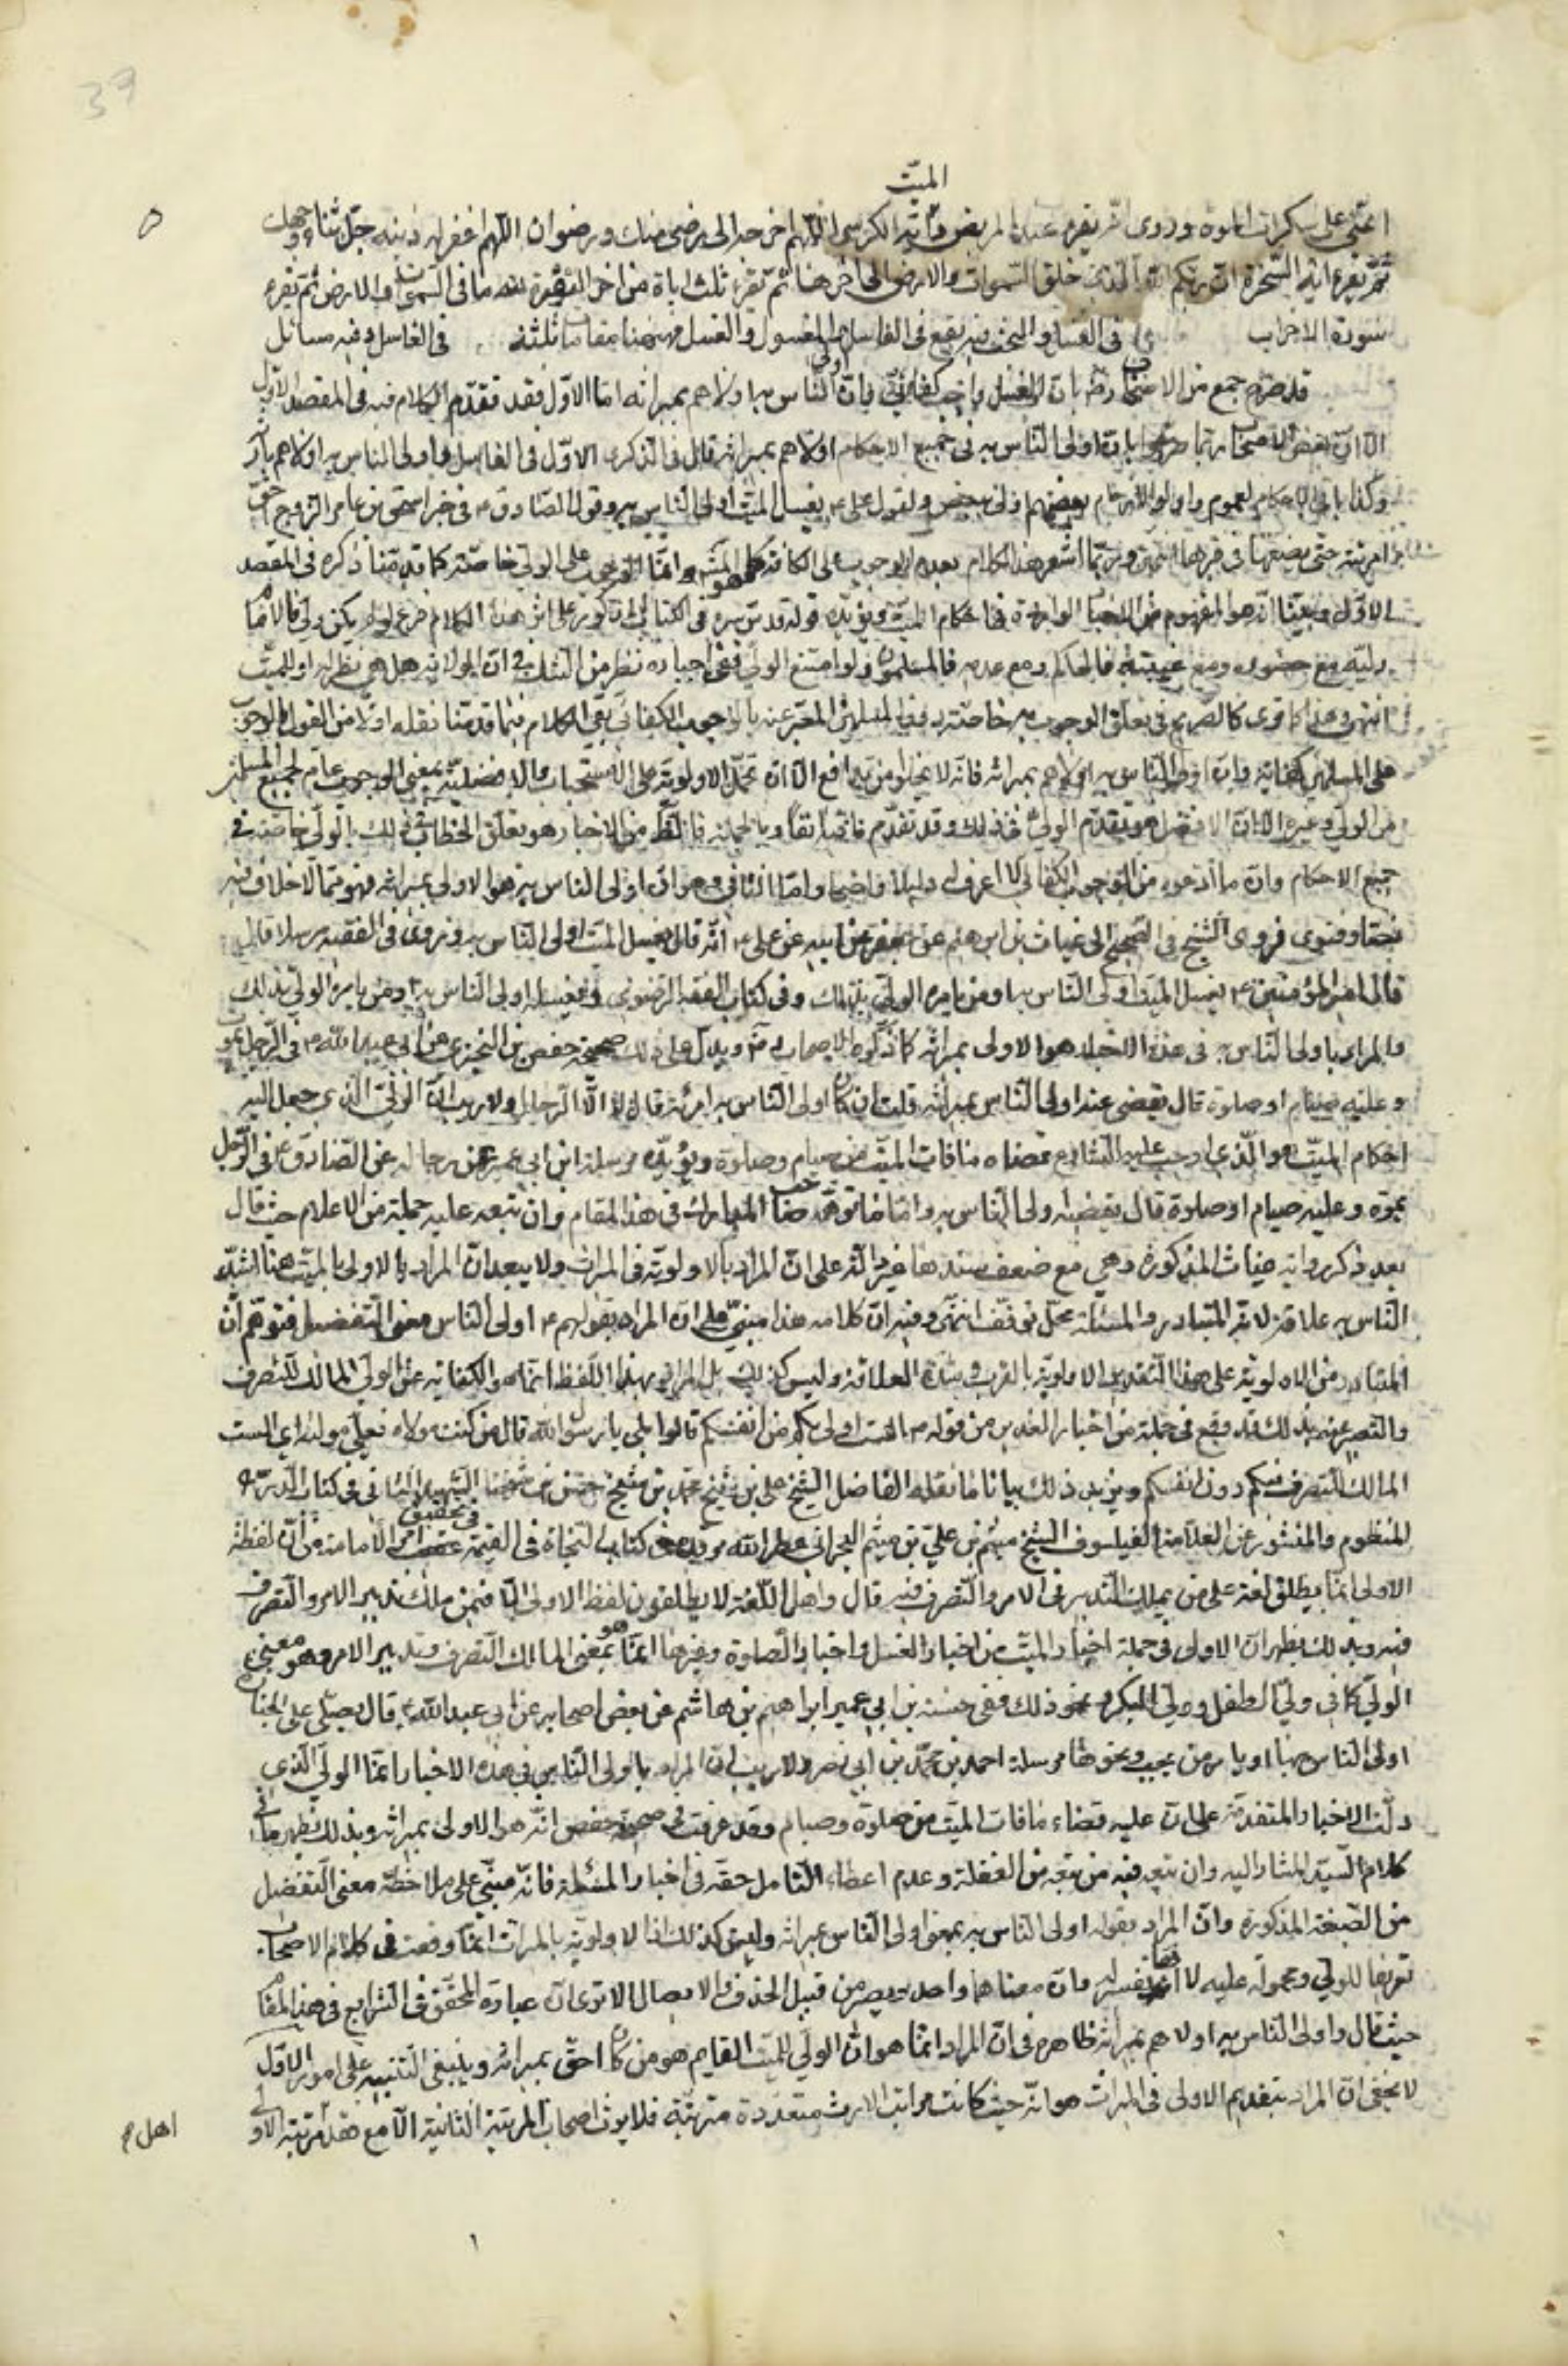 39
الميت
اعنى على سكرات الموت وروى انه يقرء عند المريض آية الكرسى اللهم اخرجه الى رضى منك ورضوان اللهم اغفر له ذنبه جل ثناء وجهك
ثم يقرء اية السخرة ان ربكم الله الذى خلق السموات والارض الى اخرها ثم تقرء ثلث ايات من اخر البقرة لله ما فى السموات والارض ثم يقرء
سورة الاحزاب فى الغسل والبحث فيه يقع فى الغاسل والمغسول والغسل فههنا مقامات ثلثة فى الغاسل وفيه مسائل
قد صرح جمع من الاصحاب رض بان الغسل واجب كفائى وبان اولى الناس به اولاهم بميراثه اما الاول فقد تقدم الكلام فيه فى المقصد الاول
الا ان بعض الاصحاب ربما صرح بان اولى الناس به فى جميع الاحكام اولاهم بميراثه قال فى الذكرى الاول فى الغاسل واولى الناس به اولاهم بارثه
وكذا باقى الاحكام لعموم واولوا الارحام بعضهم اولى ببعض ولقول على ع يغسل الميت اولى الناس به وقول الصادق ع فى خبر اسحق بن عمار الزوج احق
بامرئته حتى يضعها فى قبرها انتهى وربما اشعر هذا الكلام بعدم الوجوب على الكافة كما هو المشهور وانما الوجوب على الولى خاصة كما قدمنا ذكره فى المقصد
الاول وبينا انه هو المفهوم من الاخبار الواردة فى احكام الميت ويؤيده قوله قدس سره فى الكتاب المذكور على اثر هذا الكلام فرع لو لم يكن ولى فالامام
وليه مع حضوره ومع غيبته فالحاكم ومع عدمه فالمسلمون ولو امتنع الولى ففى اجباره نظر من الشك فى ان الولاية هل هى نظر له او للميت
انتهى وهذا كما ترى كالصريح فى تعلق الوجوب به خاصة دون المسلمين المعبر عنه بالوجوب الكفائى بقى الكلام فيما قدمنا نقله اولا من القول بالوجوب
على المسلمين كفاية وان اولى الناس به اولاهم بميراثه فانه لا يخلو من تدافع الا ان تحمل الاولوية على الاستحباب والافضلية بمعنى الوجوب عام لجميع المسلمين
من الولى وغيره الا ان الافضل هو تقدم الولى فى ذلك وقد تقدم ما فيه آنفا وبالجملة فالظاهر من الاخبار هو تعلق الخطاب بذلك بالولى خاصة فى
جميع الاحكام وان ما ادعوه من الوجوب الكفائى لا اعرف له دليلا واضحا واما الثانى وهو ان اولى الناس به هو الاولى بميراثه فهو مما لا خلاف فيه
نصا وفتوى فروى الشيخ فى الصحيح الى غياث بن ابراهيم عن جعفر عن ابيه عن على ع انه قال يغسل الميت اولى الناس به وروى فى الفقيه مرسلا قال
قال امير المؤمنين ع يغسل الميت اولى الناس به او من يامره الولى بذلك وفى كتاب الفقه الرضوى ويغسله اولى الناس به او من يامره الولى بذلك
والمراد باولى الناس به فى هذه الاخبار هو الاولى بميراثه كما ذكره الاصحاب رض ويدل على ذلك صحيحة حفص بن البخترى عن ابى عبد الله ع فى الرجل يموت
وعليه صيام او صلوة قال يقضى عنه اولى الناس بميراثه قلت ان كان اولى الناس به امرئة قال لا الا الرجال ولا ريب ان الولى الذى جعل اليه
احكام الميت هو الذى اوجب عليه الشارع قضاء ما فات الميت من صيام وصلوة ويؤيده مرسلة ابن ابى عمير عن رجاله عن الصادق ع فى الرجل
يموت وعليه صيام او صلوة قال يقضيه اولى الناس به واما ما توهمه صاحب المدارك فى هذا المقام وان تبعه عليه جملة من الاعلام حيث قال
بعد ذكر رواية غياث المذكورة وهى مع ضعف سندها غير دالة على ان المراد بالاولوية فى الميراث ولا يبعد ان المراد بالاولى بالميت هنا اشد
الناس به علاقة لانه المتبادر والمسئلة محل توقف انتهى وفيه ان كلامه هذا مبنى على ان المراد بقولهم ع اولى الناس معنى التفضيل فتوهم ان
المتبادر من الاولوية على هذا التقدير الاولوية بالقرب وشدة العلاقة وليس كذلك بل المراد بهذا اللفظ انما هو الكفاية عن الولى المالك للتصرف
والتعبير عنه بذلك قد وقع فى جملة من اخبار الغدير من قوله ص الست اولى بكم من انفسكم قالوا بلى يا رسول الله قال من كنت مولاه فعلى مولاه اى الست
المالك للتصرف فيكم دون انفسكم ويزيد ذلك بيانا ما نقله الفاضل الشيخ على بن شيخ محمد بن شيخ حسن بن شيخنا الشهيد الثانى فى كتاب الدر
المنظوم والمنثور عن العلامة الفيلسوف الشيخ ميثم بن على بن ميثم البحرانى عطر الله مرقده فى كتاب النجاة فى القيمة فى تحقيق امر الامامة من ان لفظة
الاولى انما يطلق لغة على من يملك التدبير فى الامر والتصرف فيه قال واهل اللغة لا يطلقون لفظ الاولى الا فيمن ملك تدبير الامر والتصرف
فيه وبذلك يظهر ان الاولى فى جملة اخبار الميت من اخبار الغسل واخبار الصلوة وغيرها انما هو بمعنى المالك التصرف وتدبير الامر وهو معنى
الولى كما فى ولى الطفل وولى البكر ونحو ذلك ففى حسنة بن ابى عمير ابراهيم بن هاشم عن بعض اصحابه عن ابى عبد الله ع قال يصلى على الجنازة
اولى الناس بها او يامر من يحب ونحوها مرسلة احمد بن محمد بن ابى نصر ولا ريب ان المراد باولى الناس فى هذه الاخبار انما الولى الذى
دلت الاخبار المتقدمة على ان عليه قضاء ما فات الميت من صلوة وصيام وقد عرفت فى صحيحة حفص انه هو الاولى بميراثه وبذلك يظهر ما فى
كلام السيد المشار اليه وان تبعه فيه من تبعه من الغفلة وعدم اعطاء التامل حقه فى اخبار المسئلة فانه مبنى على ملاحظة معنى التفضيل
من الصيغة المذكورة وان المراد بقوله اولى الناس به بمعنى اولى الناس بميراثه وليس كذلك اذ الاولوية بالميراث انما وقعت فى كلام الاصحاب
تعريفا للولى ومحمولة عليه لا انها تفسير له وان معناهما واحد ويصير من قبيل الحذف والايصال الا ترى ان عبارة المحقق فى الشرايع فى هذا المقام
حيث قال واولى الناس به اولاهم بميراثه ظاهرة فى ان المراد انما هو ان الولى للميت القايم هو من كان احق بميراثه وينبغى التنبيه على امور الاول
لا يخفى ان المراد بتقديم الاولى فى الميراث هو انه حيث كانت مراتب الارث متعددة مترتبة فلا يرث اصحاب المرتبة الثانية الا مع فقد مرتبة الاولى
اهل